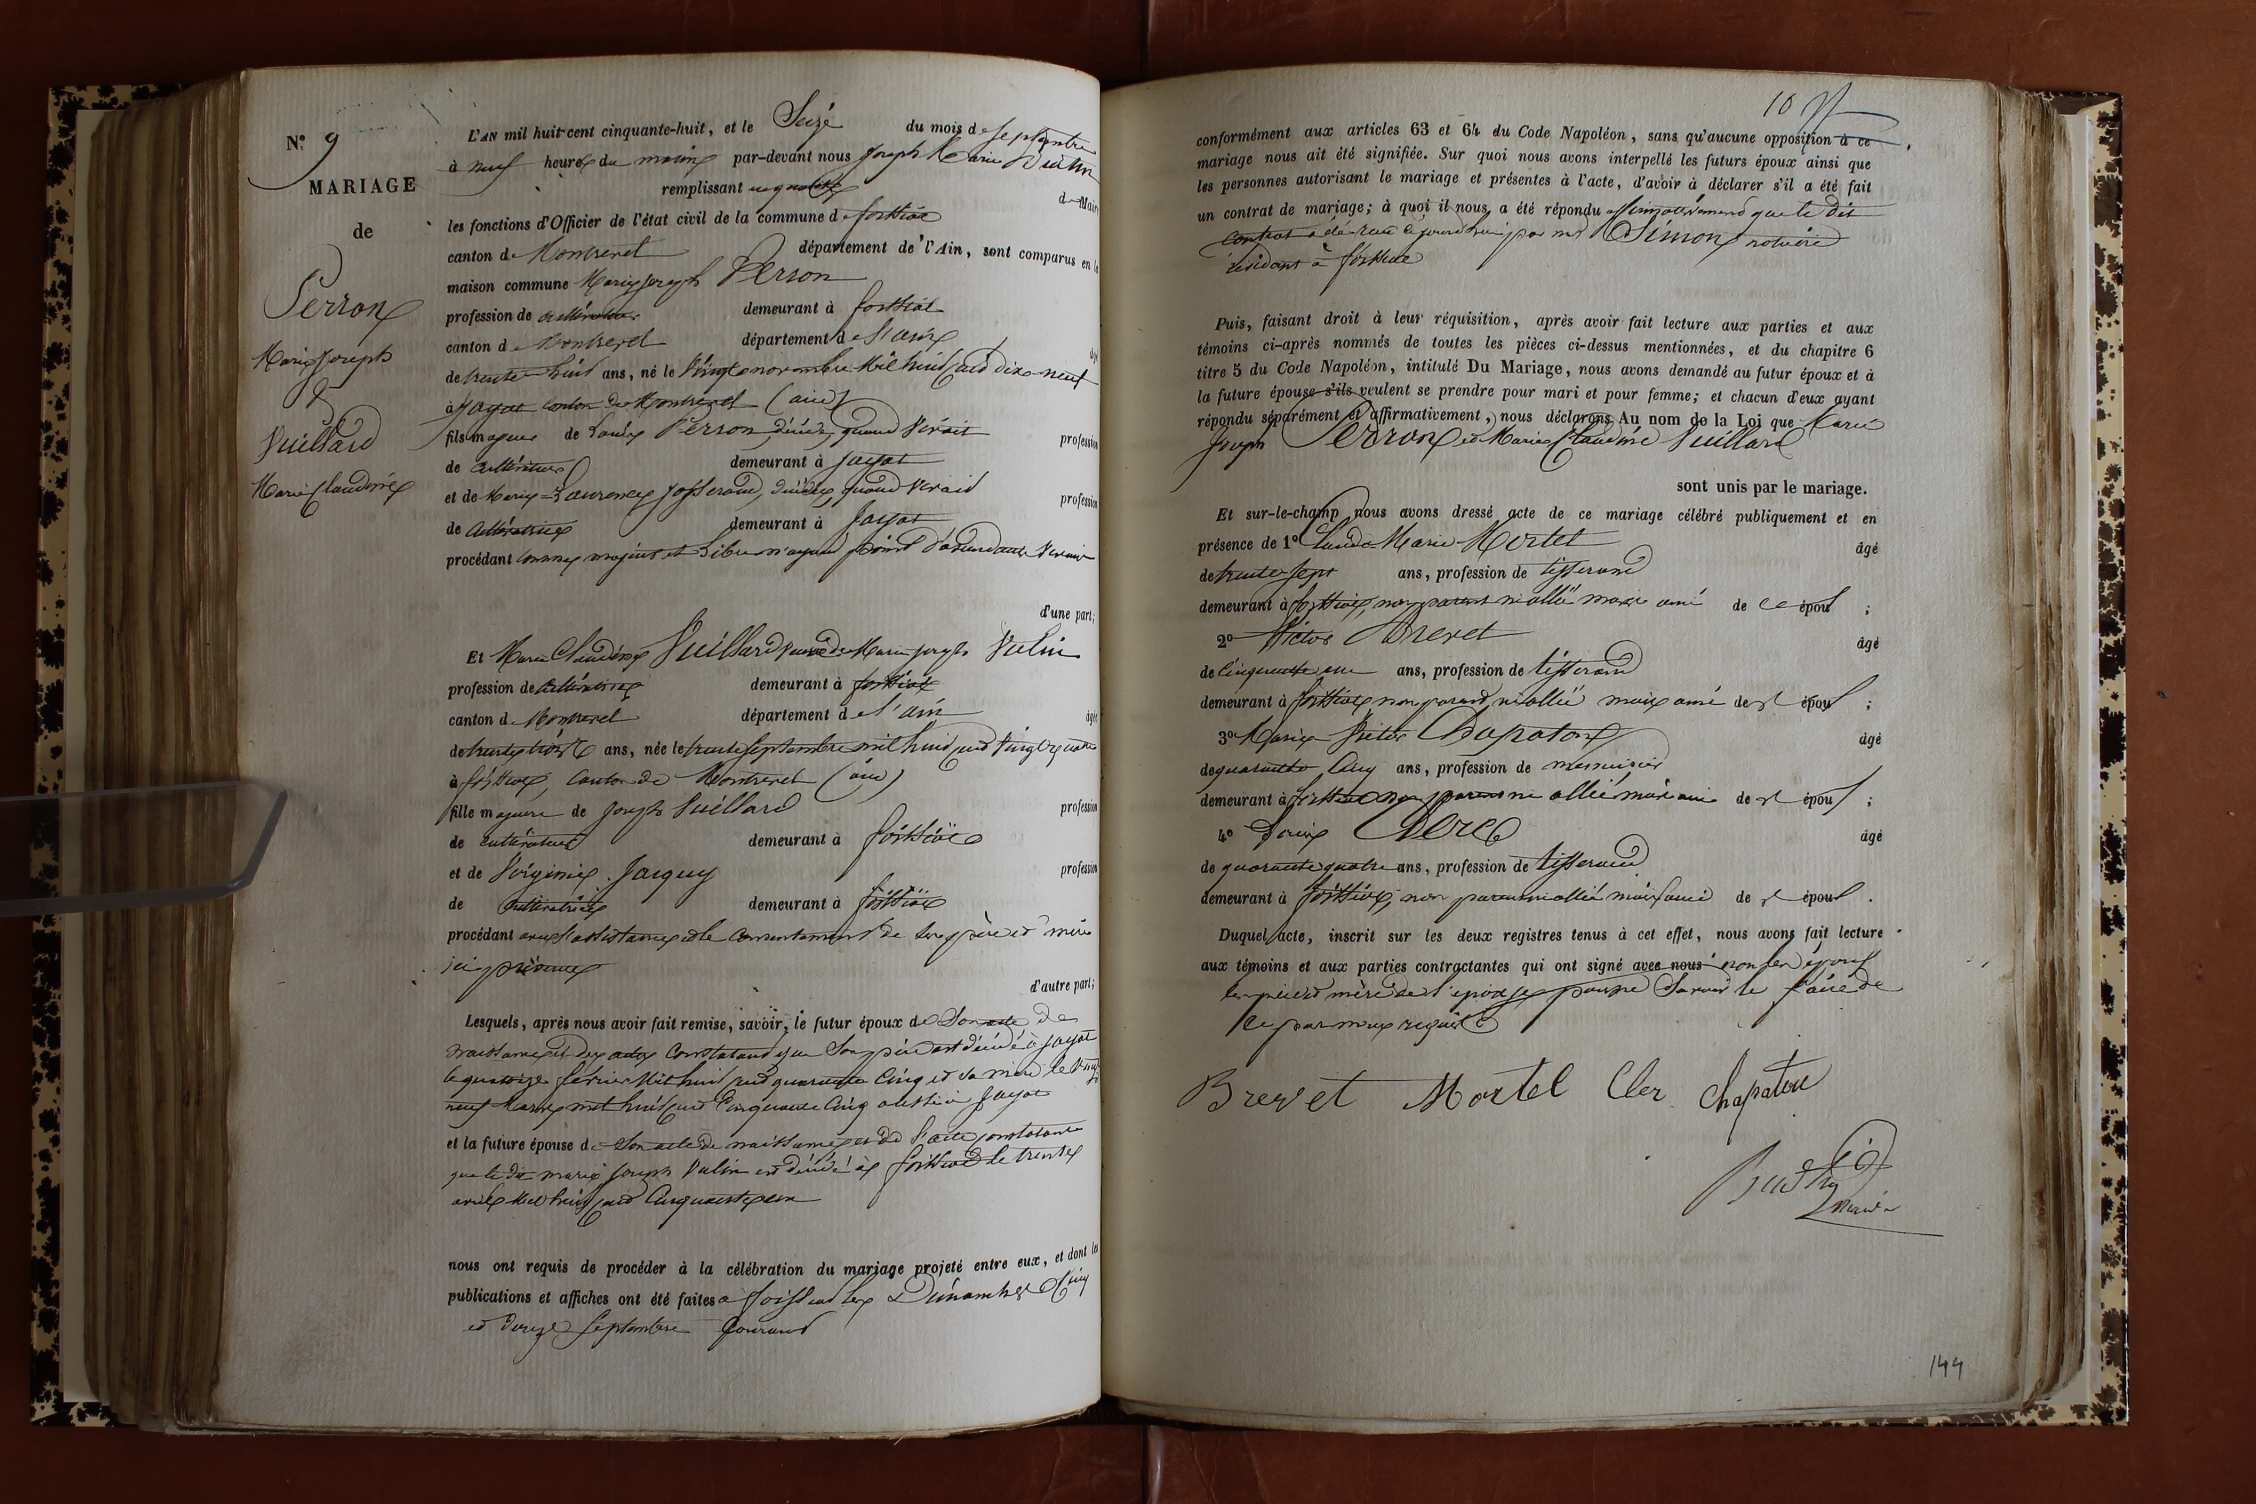 N.º 9
MARIAGE
de
Perron
Marie Joseph
&
Vuillard
Marie Claudine
L'AN mil huit-cent cinquante-huit, et le Seize du mois de Septembre
à neuf heures du matin par-devant nous Joseph Marie
remplissant en qualité de Maire
les fonctions d'Officier de l'état civil de la commune de foissiat
canton de Montrevel département de l'Ain, sont comparus en la
maison commune Marie Joseph Perron
profession de cultivateur demeurant à foissiat
canton de Montrevel département de l'ain âgé
de trente huit ans, né le vingt novembre mil huit cent dix neuf
à Jayat canton de Montrevel (ain)
fils majeur de Louis Perron, décédé, quand vivait profession
de cultivateur demeurant à Jayat
et de Marie Laurence Josserand, décédée, quand vivait profession
de cultivatrice demeurant à Jayat
procédant comme majeur et libre n'ayant point d'ascendants vivants
d'une part;
Et Marie Claudine Vuillard veuve de Marie Joseph Vulin
profession de cultivatrice demeurant à foissiat
canton de Montrevel département de l'ain âgée
de trente trois ans, née le trente septembre mil huit cent vingt quatre
à foissiat, canton de Montrevel (ain)
fille majeure de Joseph Vuillard profession
de cultivateur demeurant à foissiat
et de Virginie Jacquy profession
de cultivatrice demeurant à foissiat
procédant avec l'assistance et le consentement de ses père et mère
ici présents
d'autre part;
Lesquels, après nous avoir fait remise, savoir, le futur époux de son acte de
naissance et des actes constatant que son père est décédé à Jayat
le quatorze février mil huit cent quarante cinq et sa mère le vingt
neuf mars mil huit cent cinquante cinq Jayat
et la future épouse de son acte de naissance et de l'acte constatant
que le dit marie Joseph Vulin est décédé à foissiat le trente
avril mil huit cent cinquante
nous ont requis de procéder à la célébration du mariage projeté entre eux, et dont les
publications et affiches ont été faites à foissiat les Dimanches cinq
et douze septembre courant
10
conformément aux articles 63 et 64 du Code Napoléon, sans qu'aucune opposition à ce
mariage nous ait été signifiée. Sur quoi nous avons interpellé les futurs époux ainsi que
les personnes autorisant le mariage et présentes à l'acte, d'avoir à déclarer s'il a été fait
un contrat de mariage; à quoi il nous a été répondu affirmativement que le dit
contrat a été reçu par me Simon notaire
résidant à foissiat
Puis, faisant droit à leur réquisition, après avoir fait lecture aux parties et aux
témoins ci-après nommés de toutes les pièces ci-dessus mentionnées, et du chapitre 6
titre 5 du Code Napoléon, intitulé Du Mariage, nous avons demandé au futur époux et à
la future épouse s'ils veulent se prendre pour mari et pour femme; et chacun d'eux ayant
répondu séparément et affirmativement, nous déclarons Au nom de la Loi que Marie
Joseph Perron et Marie Claudine Vuillard
sont unis par le mariage.
Et sur-le-champ nous avons dressé acte de ce mariage célébré publiquement et en
présence de 1º Claude Marie Mortel âgé
de trente sept ans, profession de tisserand
demeurant à foissiat, non parent ni allié mais ami de ce époux ;
2º Victor Brevet âgé
de cinquante un ans, profession de tisserand
demeurant à foissiat non parent, ni allié mais ami de époux ;
3º Marie Victor Chapaton âgé
de quarante cinq ans, profession de menuisier
demeurant à foissiat non parent ni allié mais ami de époux ;
4º Louis Clerc âgé
de quarante quatre ans, profession de tisserand
demeurant à foissiat, non parent ni allié mais ami de époux .
Duquel acte, inscrit sur les deux registres tenus à cet effet, nous avons fait lecture
aux témoins et aux parties contractantes qui ont signé avec nous non les époux
les père et mère de l'épouse pour ne savoir le faire de
ce par nous requis
Brevet Mortel Cler Chapaton
maire
144